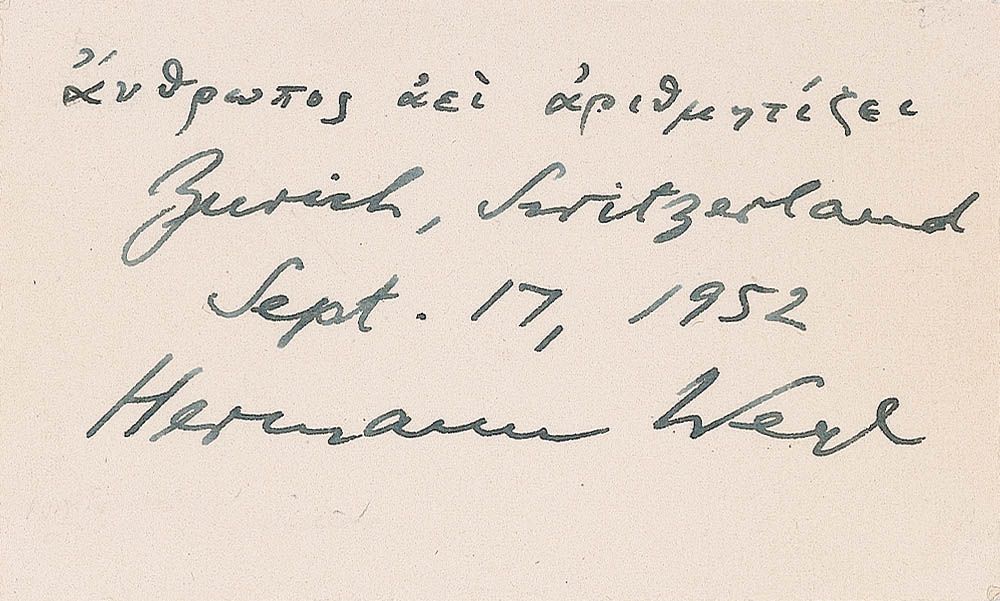 ἄνθρωπος ἀεὶ ἀριθμητίζει
Zurich, Switzerland
Sept. 17, 1952
Hermann Weyl